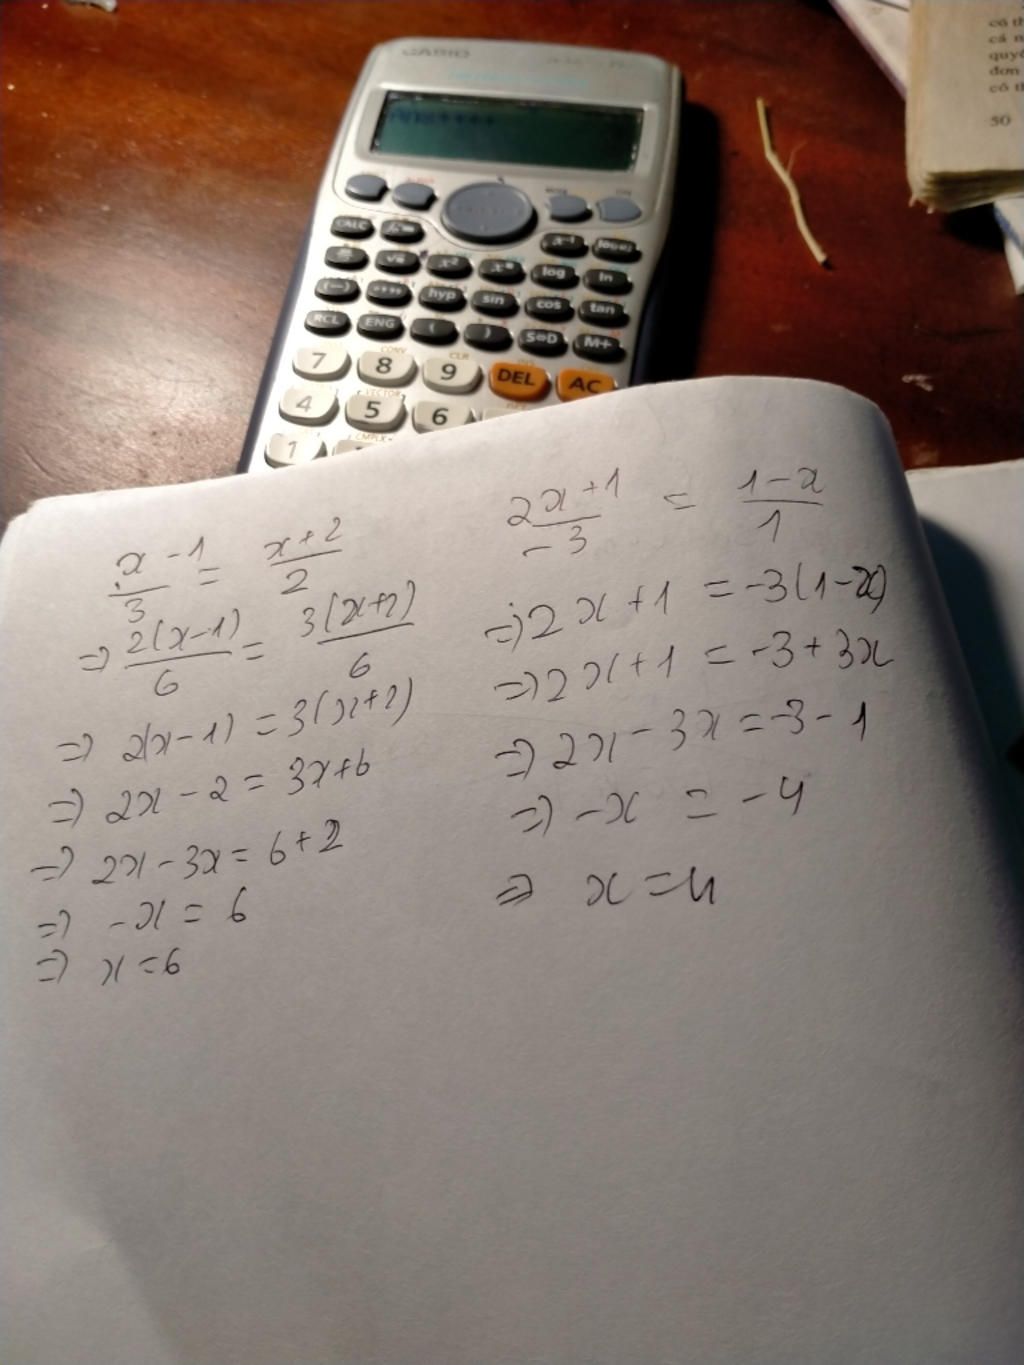 CASIO
CALC
x⁻¹
√
x²
log
ln
(−)
hyp
sin
cos
tan
RCL
ENG
(
)
S⇔D
M+
CONV
CLR
7
8
9
DEL
AC
VECTOR
4
5
6
CMPLX
1
có th
cá n
quyề
đơn
có th
50
x - 1 / 3 = x + 2 / 2
=> 2(x-1) / 6 = 3(x+2) / 6
=> 2(x-1) = 3(x+2)
=> 2x - 2 = 3x+6
=> 2x - 3x = 6+2
=> -x = 6
=> x = 6
2x+1 / -3 = 1-x / 1
=> 2x+1 = -3(1-x)
=> 2x+1 = -3+3x
=> 2x - 3x = -3-1
=> -x = -4
=> x = 4